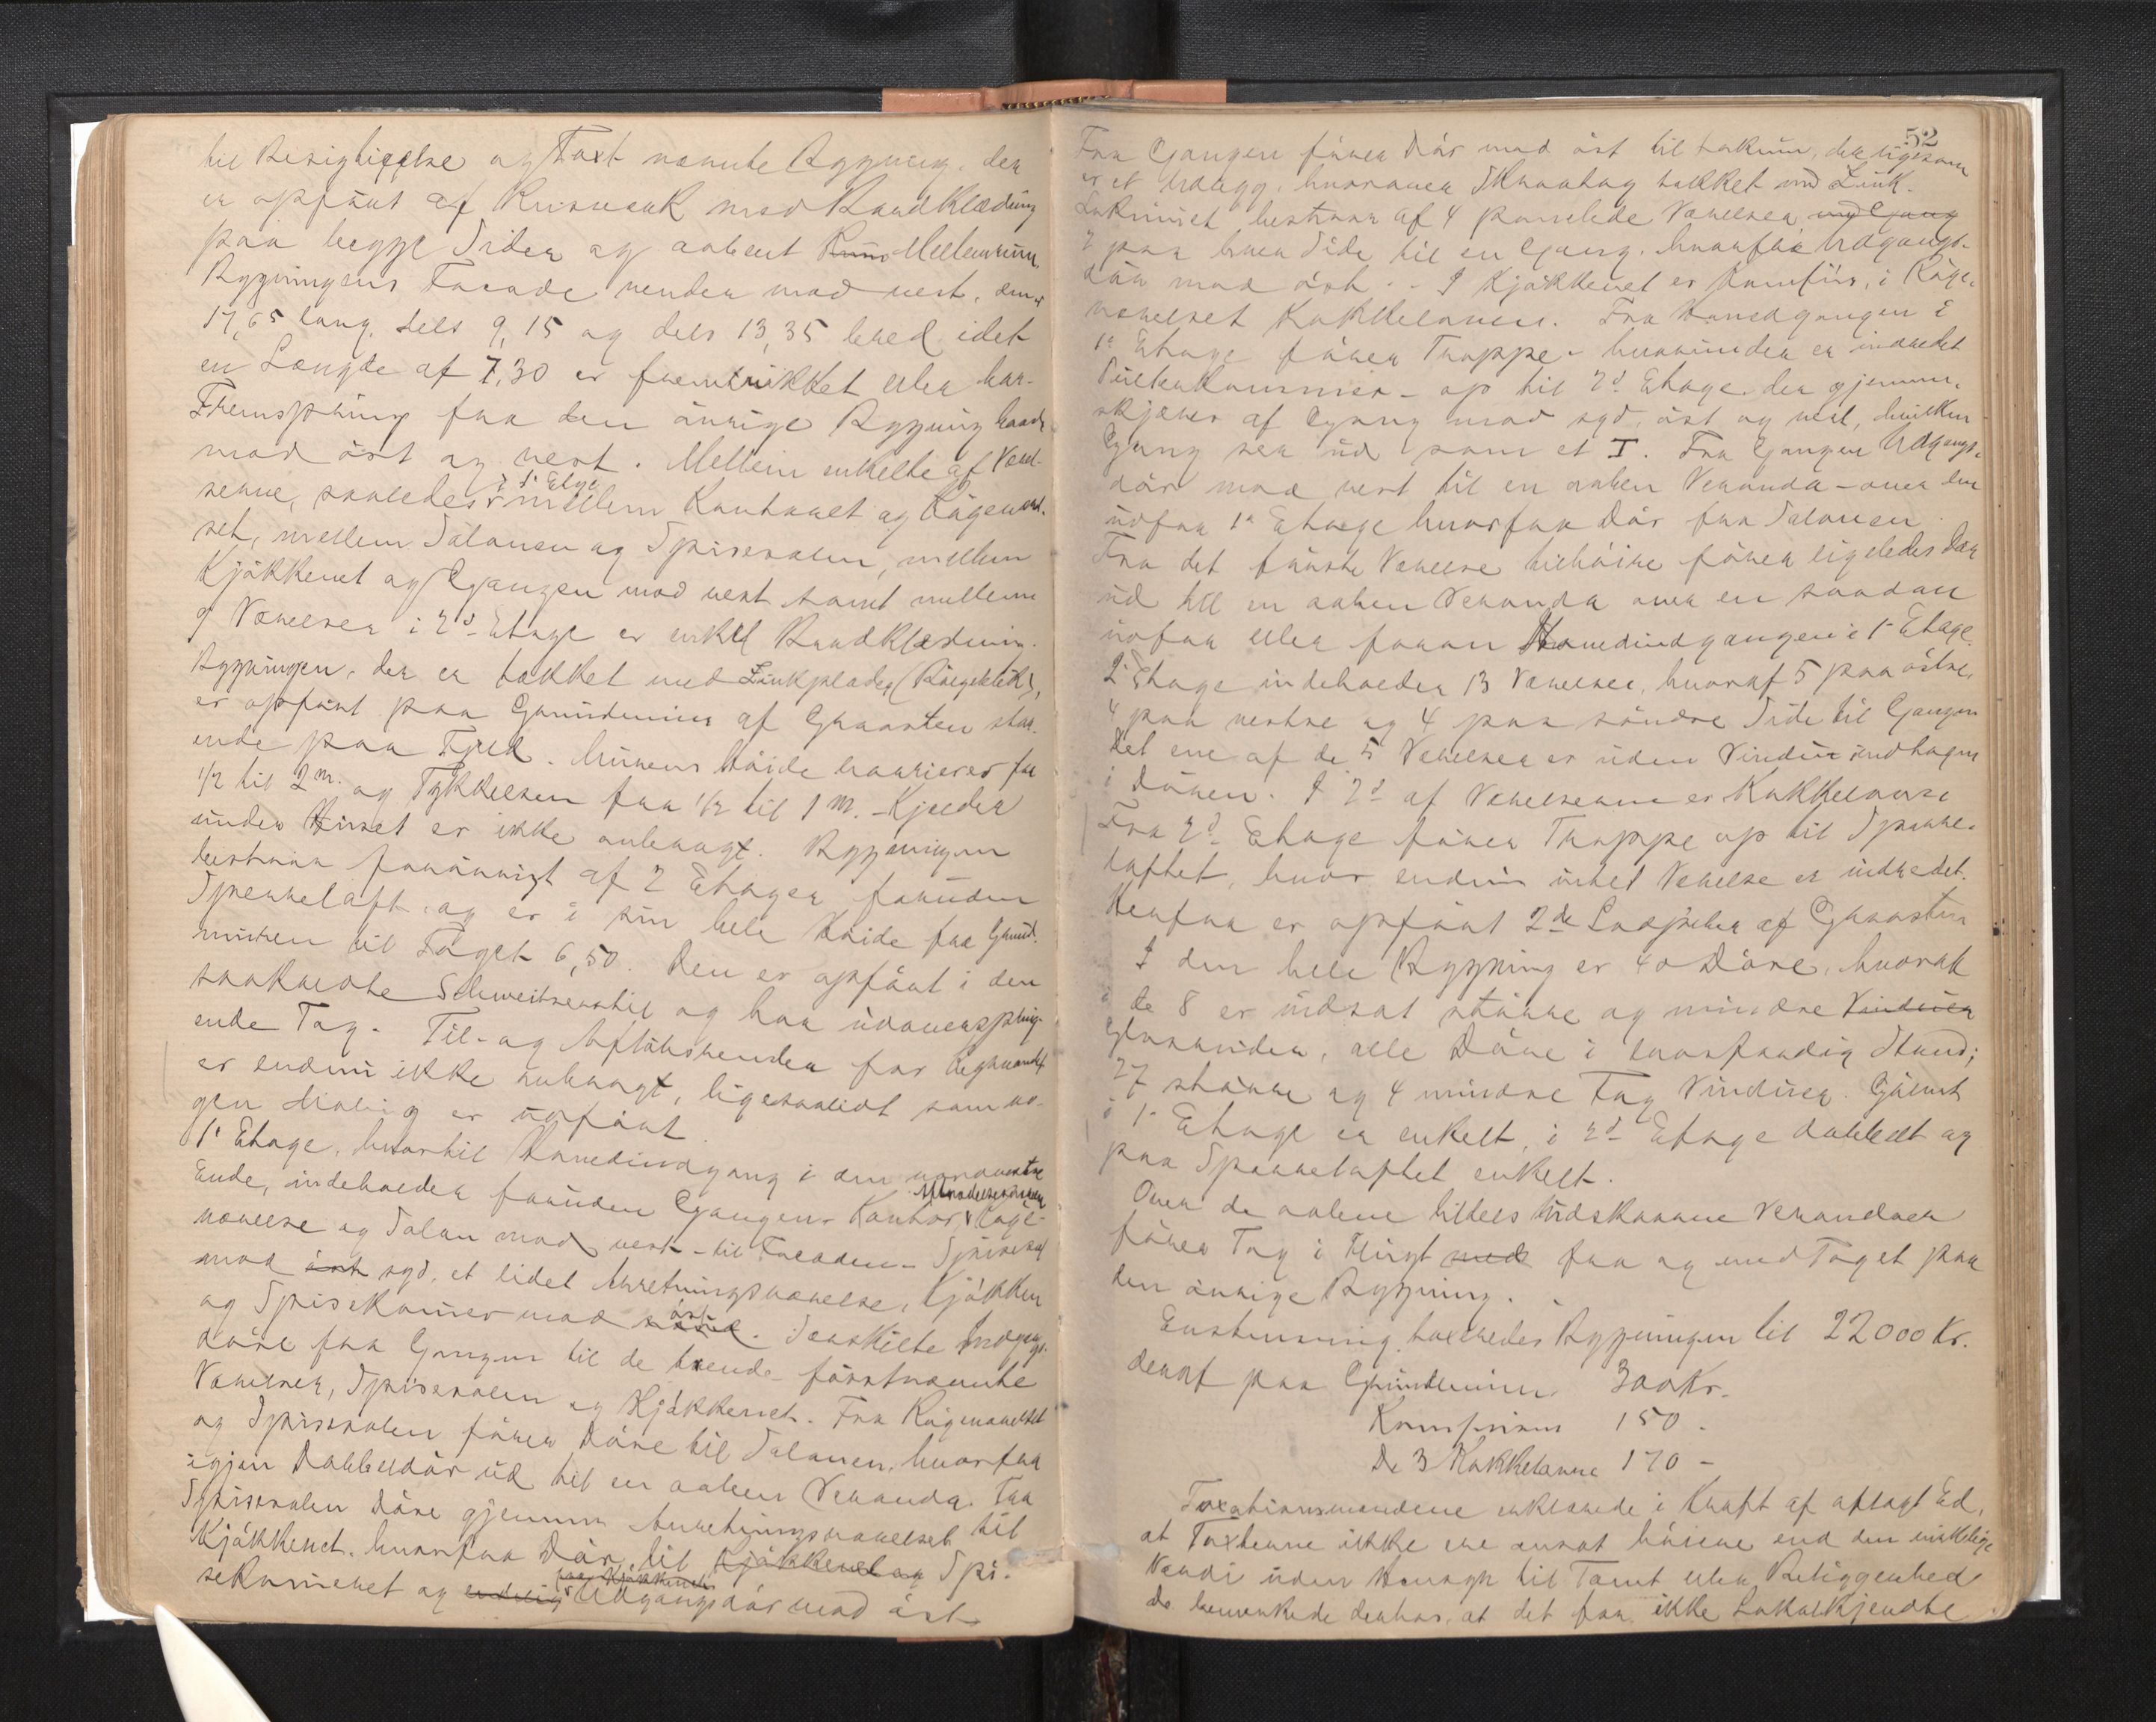 til Besigtigelse og Taxt nævnte Bygning, der
er opført af Bindverk med Bordklædning
paa begge Sider og aabent Rum Mellemrum.
Bygningens Facade vender mod vest, den er
17,65 lang, dels 9,15 og dels 13,35 bred idet
en Længde af 7,30 er fremrykket eller har
Fremspring fra den øvrige Bygning baade
mod øst og vest. Mellem enkelte af Værel-
serne, saaledes i 1ste Etage mellem Kontoret og Røgeværel-
set, mellem Salonen og Spisesalen, mellem
Kjøkkenet og Gangen mod vest samt mellem
9 Værelser i 2d Etage er enkel Bordklædning.
Bygningen, der er tækket med Zinkplader (Bølgeblik),
er opført paa Grundmur af Graasten staa-
ende paa Fjeld. Murens Høide varierer fra
1/2 til 2 m. og Tykkelsen fra 1/2 til 1 m. - Kjelder
under Huset er ikke anbragt. Bygningen
bestaar forøvrigt af 2 Etager foruden
Sperreloft, og er i sin hele Høide fra Grund-
muren til Taget 6,50. Den er opført i den
saakaldte Schweitzerstil og har udoverspring-
ende Tag. Til- og Afløbsrender for Tagvandet
er endnu ikke anbragt, ligesaalidt som no-
gen Maling er udført.
1ste Etage, hvortil Hovedindgang i den nordvestre
Ende, indeholder foruden Gangen - Kontor, Røge-
værelse og Salon mod vest - til Facaden - Spisesal
mod øst syd, et lidet Anretningsværelse, Kjøkken
og Spisekammer mod øst. Særskilte Indgangs-
døre fra Gangen til de tvende førstnævnte
Værelser, Spisesalen og Kjøkkenet. Fra Røgeværelset
og Spisesalen fører Døre til Salonen, hvorfra
igjen Dobbeldør ud til en aaben Veranda. Fra
Spisesalen Døre gjennem Anretningsværelset til
Kjøkkenet, hvorfra Dør til Kjøkkenet og Spi-
sekammeret og endelig fra Kjøkkenet Udgangsdør mod øst
52
Fra Gangen fører Dør mod øst til Lokum, der ligesom
er et Udbygg, hvorover Skraatag tækket med Zink.
Lokumet bestaar af 4 panelede Værelser med Gang
2 paa hver Side til en Gang, hvorfra Udgangs-
dør mod øst. - I Kjøkkenet er Komfur, i Røge-
værelset Kakkelovn. Fra Hovedgangen i
1ste Etage fører Trappe - hvorunder er indredet
Pulterkammer - op til 2d Etage, der gjennem-
skjæres af Gang mod syd, øst og vest, hvilken
Gang ser ud som et I. Fra Gangen Udgangs-
dør mod vest til en aaben Veranda - over den
udfra 1ste Etage hvorfra Dør fra Salonen.
Fra det første Værelse tilhøire fører ligeledes Dør
ud til en aaben Veranda over en saadan
udfra eller foran Hovedindgangen i 1ste Etage.
2d Etage indeholder 13 Værelser, hvoraf 5 paa østre,
4 paa vestre og 4 paa søndre Side til Gangen
Det ene af de 5 Værelser er uden Vindu undtagen
i Døren. I 2d af Værelserne er Kakkelovne
Fra 2d Etage fører Trappe op til Sperre-
loftet, hvor endnu intet Værelse er indredet.
Herfra er opført 2de Ladpiber af Graasten
I den hele Bygning er 40 Døre, hvorak
i de 8 er indsat større og mindre Vinduer
Glasruder, alle Døre i snorfærdig Stand;
27 større og 4 mindre Fag Vinduer. Gulvet
i 1ste Etage er enkelt, i 2d Etage dobbelt og
paa Sperreloftet enkelt.
Over de aabne tildels udskaarne Verandaer
fører Tag i Flugt med fra og med Taget paa
den øvrige Bygning.
Enstemmig taxeredes Bygningen til 22000 Kr.
deraf paa Grundmuren 300 Kr.
Komfuren 150 -
De 3 Kakkelovne 170 -
Taxationsmændene erklærede i Kraft af aflagt Ed,
at Taxterne ikke ere ansat høiere end den virkelige
Værdi uden Hensyn til Tomt eller Beliggenhed
De bemærkede derhos, at det for ikke Lokalkjendte